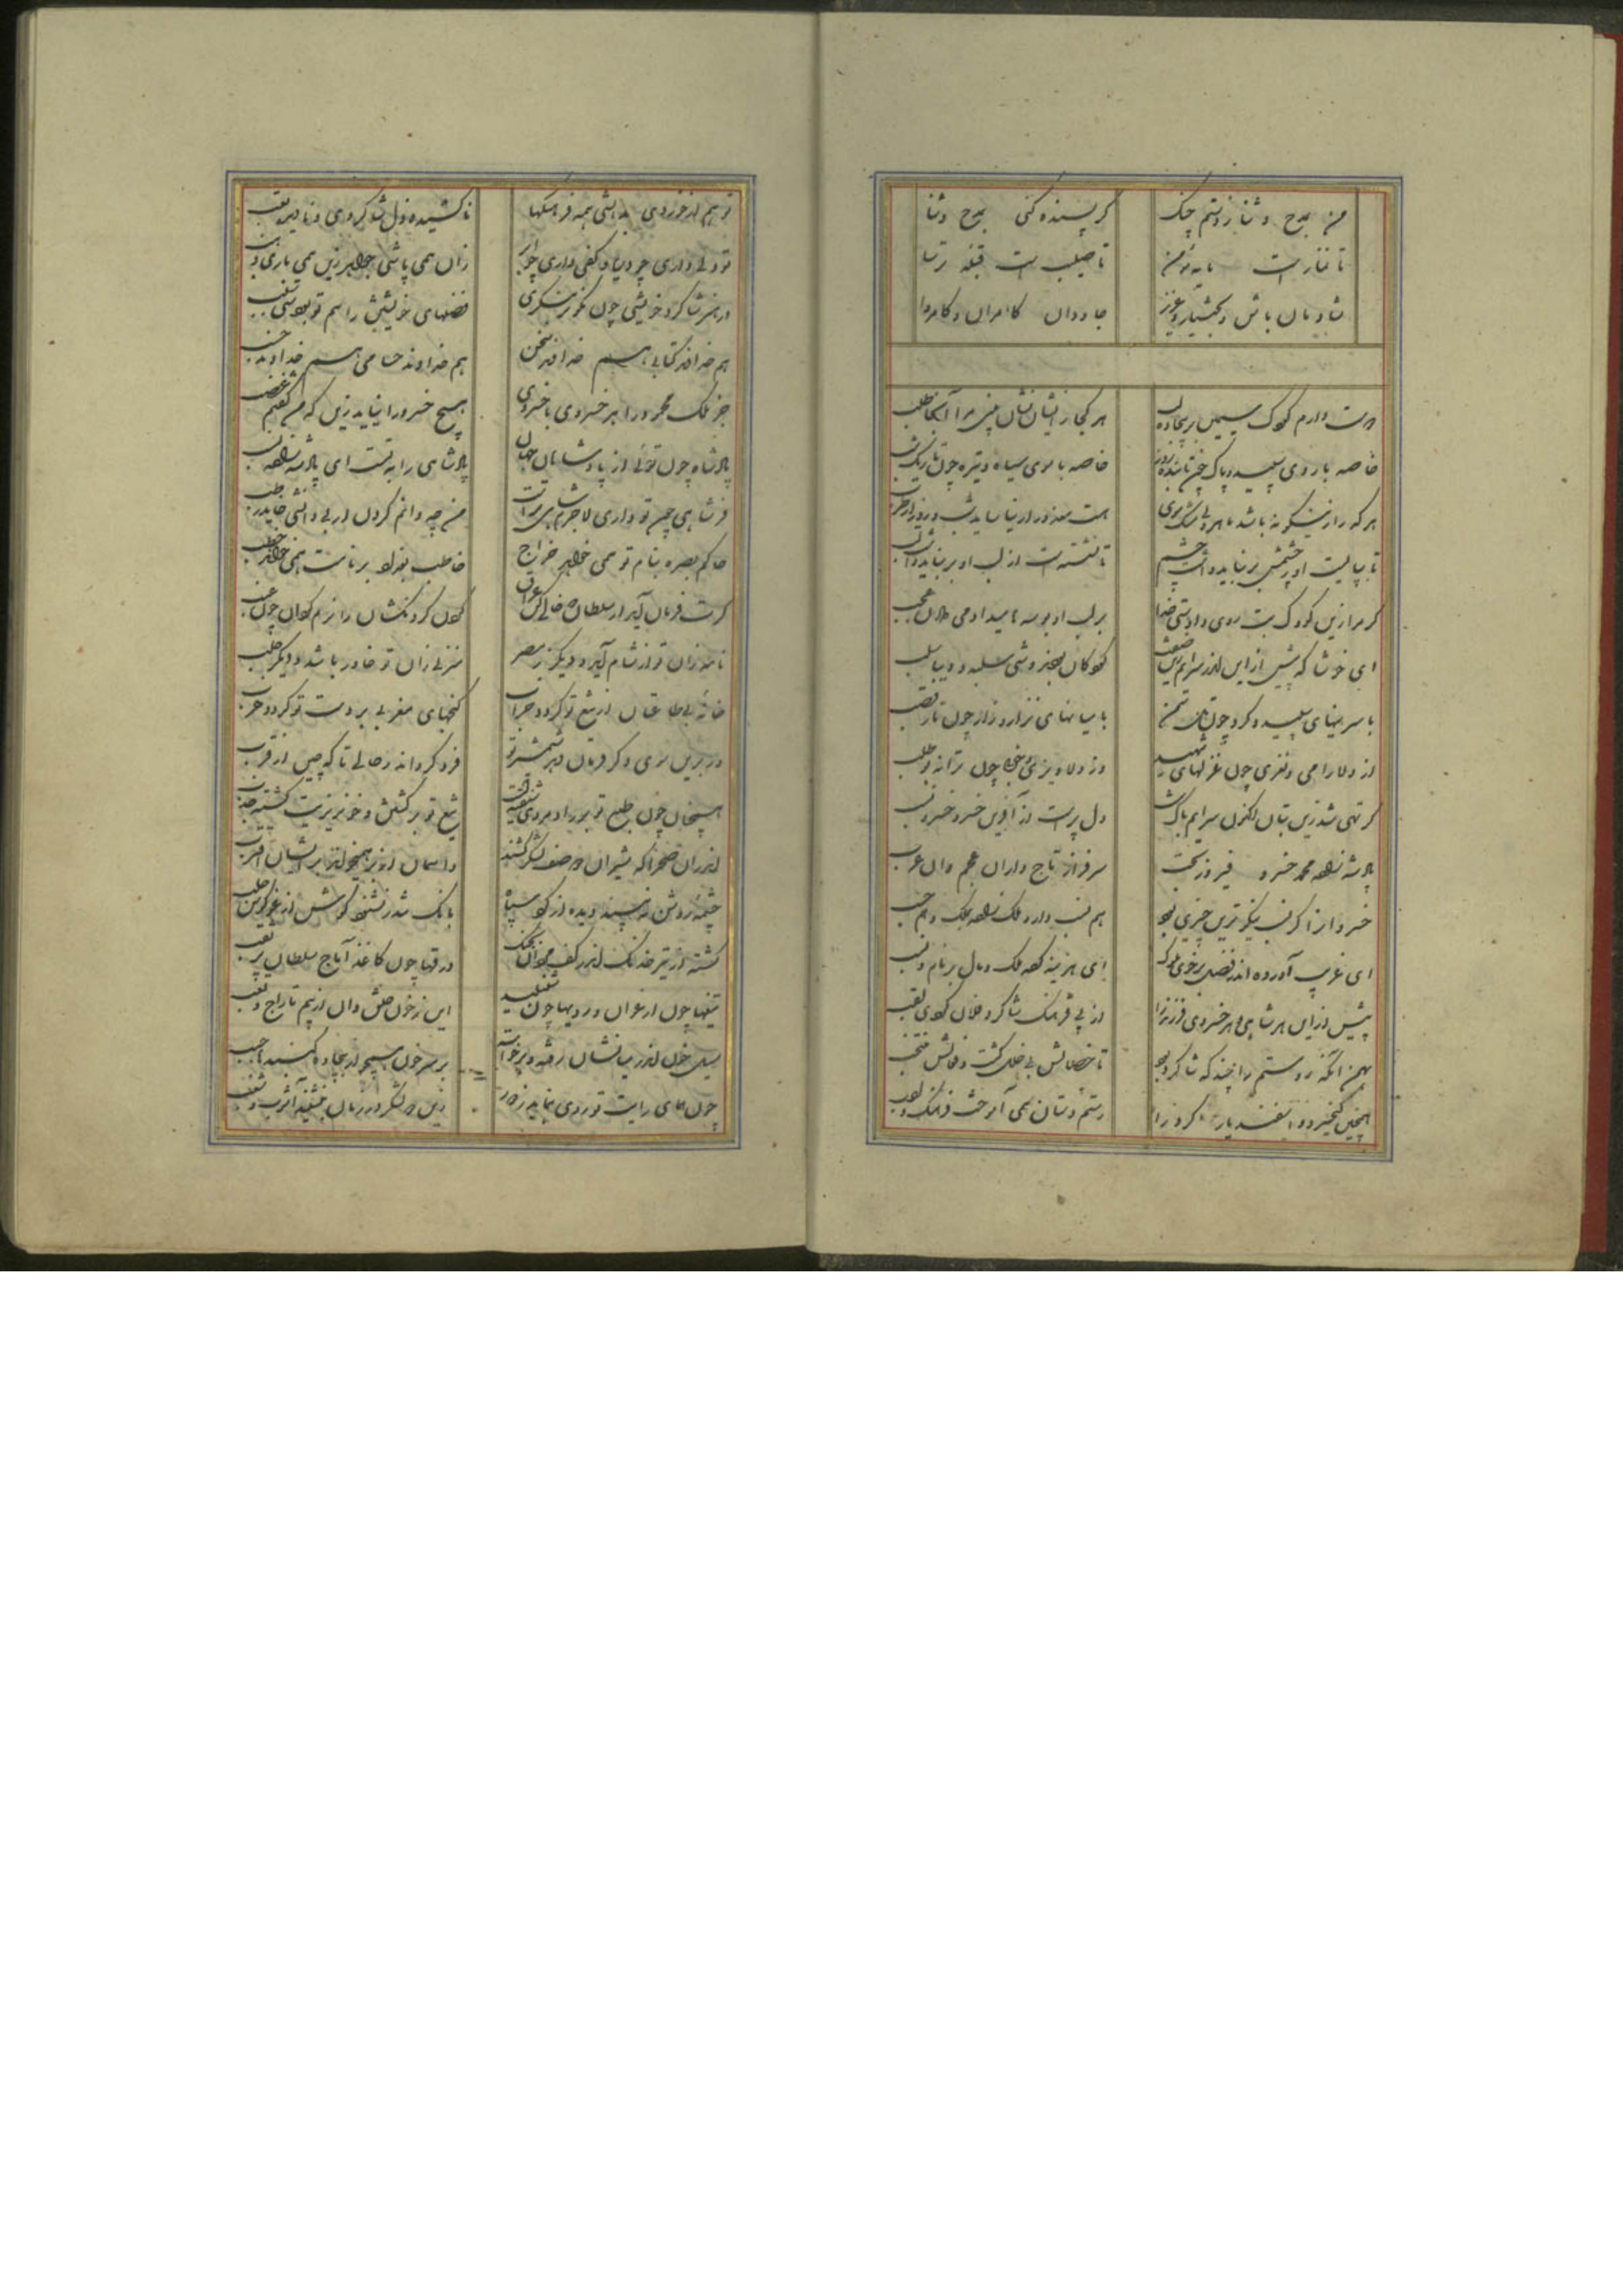 من بمدح و ثنا زدستم چنگ گر پسنده کنی بمدح و ثنا
تا نماز است مایه مؤمن تا صلیب است قبله ترسا
شادمان باش و بختیار و عزیز جاودان کامران و کامروا
دوست دارم کودک سیمین بر بیجاده لب هر کجا زایشان نشان بینی مرا آنجا طلب
خاصه با روی سپید و پاک چون تابنده روز خاصه با موی سیاه و تیره چون تاریک شب
هر که را زینگونه باشد ماهرویی مشکبوی هست معذور ار نیاساید شب و روز از طرب
تا بپایست او ز چشمش بر نباید داشت چشم تا نشسته است از لب او بر نباید داشت لب
گر مرا زین کودک بت روی دادستی خدا بر لب او بوسه ها میدادمی هلا عجب
ای خوشا که پیش از این اندر سرایم صف کودکان بودند
با سرینهای سپید و گرد چون تل سمن با میانهای نزار و زار چون تار قصب
از دلارامی و نغزی چون غزلهای شهید وز دلاویزی و خوبی چون ترانه بوطلب
گر تهی شد زین بتان اکنون سرایم باک نیست دل پر است از آفرین خسرو خسرو نسب
پادشه زاده محمد خسرو فیروزبخت سرفراز تاجداران عجم وان عرب
خسروان را گر نسب نیکوترین چیزی بود هم نسب دارد ملک زاده بملک و هم حسب
ای غریب آورده اندر فضل بر خوی ملوک ای هزینه کرده ملک و مال بر نام و نسب
پیش از این هر شاهی و هر خسروی فرزند را از پی فرهنگ شاگرد فلان کردی لقب
بهمن آنگه روستم را چند که شاگرد بود تا خصالش بی خلل گشت و فعالش منتخب
همچنین کیخسرو و اسفندیار گرد را رستم دستان همی آموخت فرهنگ و ادب
تو هم از خردی بدانستی همه فرهنگها ناکشیده ذل شاگردی و نادیده تعب
تو دلی داری چو دریا و کفی داری چو ابر زان همی پاشی جواهر زین همی باری ذهب
در هنر شاگرد خویشی چون نکوتر بنگری فضلهای خویشتن را هم تو بودستی سبب
هم خداوند کتابی هم خداوند سخن هم خداوند حسامی هم خداوند حسب
جز ملک محمود را هر خسروی با خسروی هیچ خسرو را نیاید زین که من گفتم غضب
پادشاه چون توئی از پادشاهان جهان پادشاهی را به تست ای پادشه زاده نسب
فر شاهی چون تو داری لاجرم شاهی تراست من چه دانم کردن ار بی دانشی خاید رطب
حاکم بصره بنام تو همی خواهد خراج خاطب بغداد بر نامت همی خواند خطب
گرت فرمان آید از سلطان که خالی کن عراق گردن گردنکشان را نرم گردان چون عنب
نامه زان تو از شام آید و دیگر ز مصر منزلی زان تو خاور باشد و دیگر حلب
خانه بی طاعتان از تیغ تو گردد خراب گنجهای مغربی بر دست تو گردد خرب
ور بدین سوی دگر فرمان دهد شمشیر تو فرد گرداند ز خانی تا که چین از قرب
همچنان چون طبع تو بر رادمردی شیفته است تیغ تو بر کشتن و خونریزیت گشته عجب
اندران صحرا که شیران دو صف لشکر کشند واسمان از بر همی خواند بر ایشان اقترب
چشمه روشن نبیند دیده از گرد سپاه بانگ تندر نشنود گوش از غو کوس و جلب
گشته از تیر خدنگ اندر کف مردان جنگ درقها چون کاغذ آماج سلطان پر ثقب
تیغها چون ارغوان و رویها چون شنبلید این ز خون حلق وان از بیم تاراج و نهب
سیل خون اندر میانشان رفته و برخواسته بر سر خون همچو بیجاده گنبدها حبب
چون همای رایت تو روی بنماید ز دور زین دو لشکر در زمان بنشیند آشوب و شغب